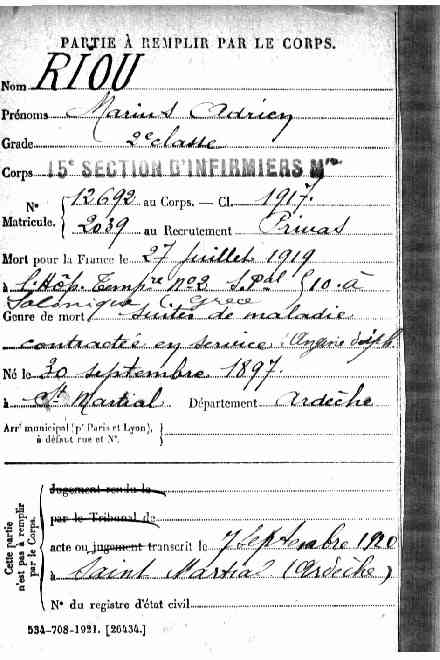 PARTIE À REMPLIR PAR LE CORPS.
Nom RIOU
Prénoms Marius Adrien
Grade 2e classe
Corps 15e SECTION D'INFIRMIERS Mres
N° Matricule. 12692 au Corps. — Cl. 1917.
2039 au Recrutement Privas
Mort pour la France le 27 Juillet 1919
à l'Hôp. Tempre no2 10. à
Salonique Grèce
Genre de mort suites de maladie
contractée en service Angine
Né le 30 septembre 1897.
à St Martial Département Ardèche
Arrt municipal (pr Paris et Lyon),
à défaut rue et N°.
Cette partie n'est pas à remplir par le Corps.
Jugement rendu le
par le Tribunal de
acte ou jugement transcrit le 7 Septembre 1920
à Saint Martial (Ardèche)
N° du registre d'état civil
534-708-1921. [26434.]